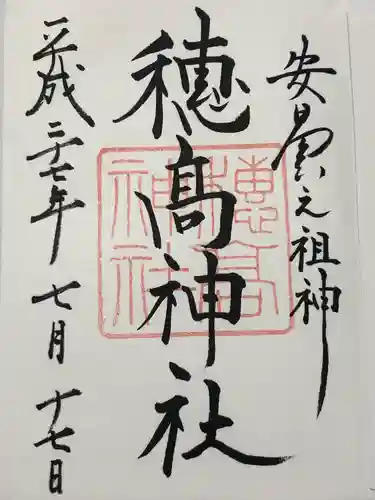 安曇之祖神
穂髙神社
平成二十七年七月十七日
穂高神社